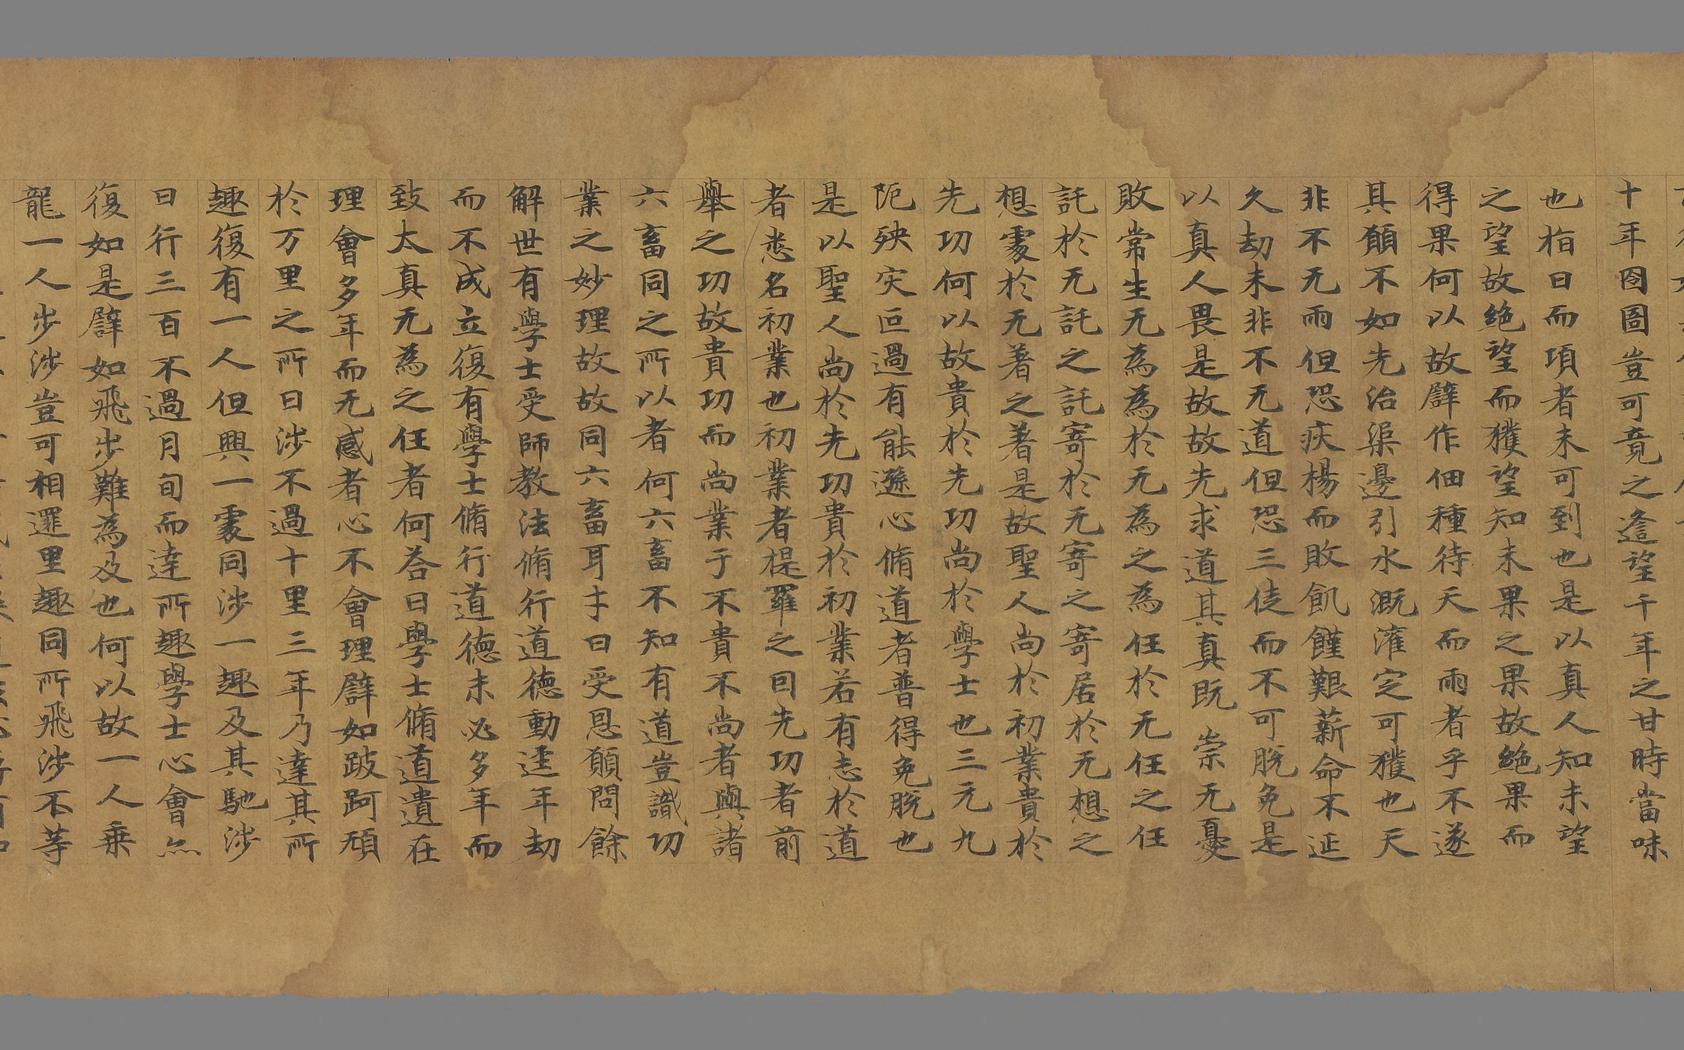 十年囹圄豈可竟之逢望千年之甘時當味
也栢日而項者未可到也是以真人知未望
之望故絶望而獲望知未果之果故絶果而
得果何以故譬作佃種待天而雨者乎不遂
其願不如先治渠邊引水溉灌定可獲也天
非不无雨但恐疾楊而敗飢饉艱薪命不延
久劫未非不无道但恐三徒而不可脫免是
以真人畏是故故先求道其真既崇无憂
敗常生无為為於无為之為任於无任之任
託於无託之託寄於无寄之寄居於无想之
想處於无著之著是故聖人尚於初業貴於
先功何以故貴於先功尚於學士也三元九
阨殃灾叵過有能遜心脩道者普得免脫也
是以聖人尚於先功貴於初業若有志於道
者悉名初業也初業者提羅之回先功者前
舉之功故貴功而尚業于不貴不尚者與諸
六畜同之所以者何六畜不知有道豈識功
業之妙理故故同六畜耳才曰受恩願問餘
解世有學士受師教法脩行道德動逕年劫
而不成立復有學士脩行道德未必多年而
致太真无為之任者何荅曰學士脩道遺在
理會多年而无感者心不會理譬如跛跒頑
於万里之所日涉不過十里三年乃達其所
趣復有一人但興一處同涉一趣及其馳涉
日行三百不過月旬而達所趣學士心會亦
復如是譬如飛步難為及也何以故一人乗
龍一人步涉豈可相遝里趣同所飛涉不等